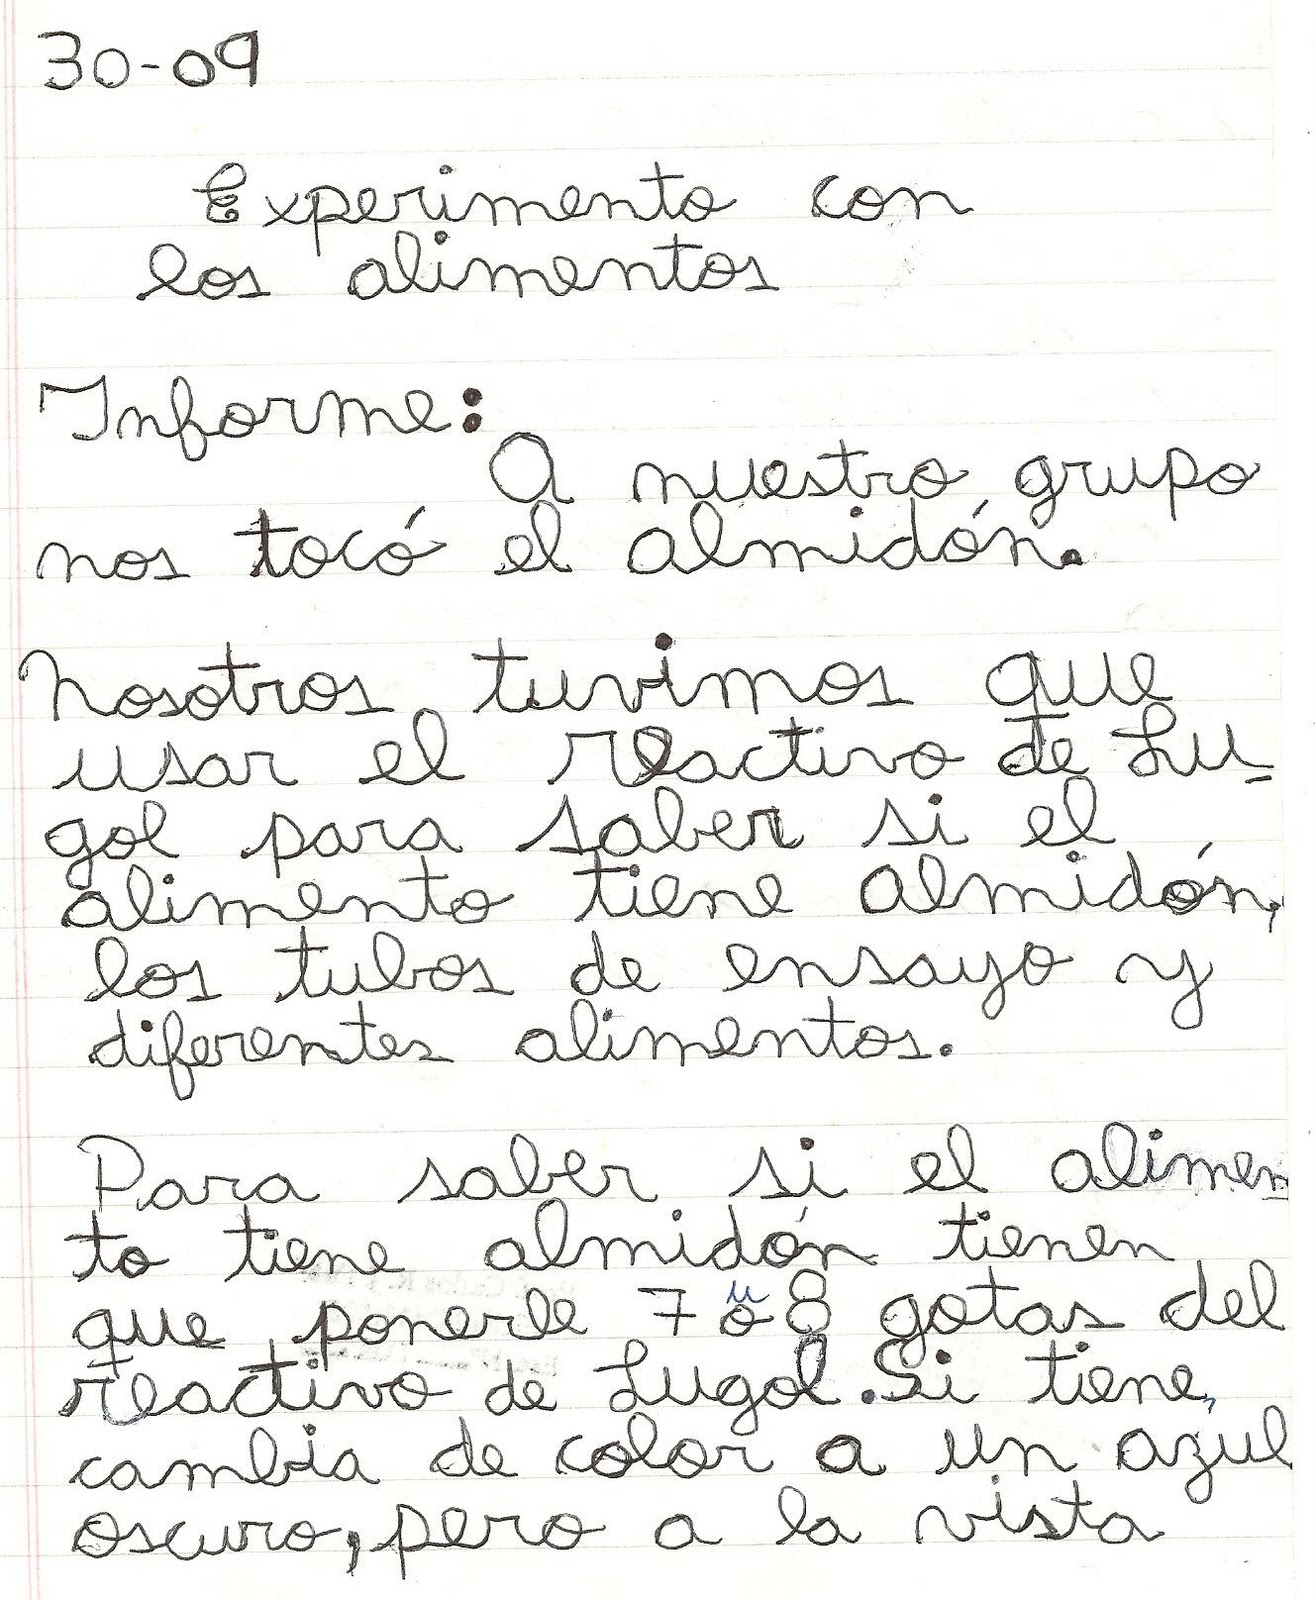 30-09
Experimento con
los alimentos
Informe:
A nuestro grupo
nos tocó el almidón.
Nosotros tuvimos que
usar el reactivo de Lu-
gol para saber si el
alimento tiene almidón,
los tubos de ensayo y
diferentes alimentos.
Para saber si el alimen
to tiene almidón tienen
que ponerle 7 ó u 8 gotas del
reactivo de Lugol. Si tiene,
cambia de color a un azul
oscuro, pero a la vista